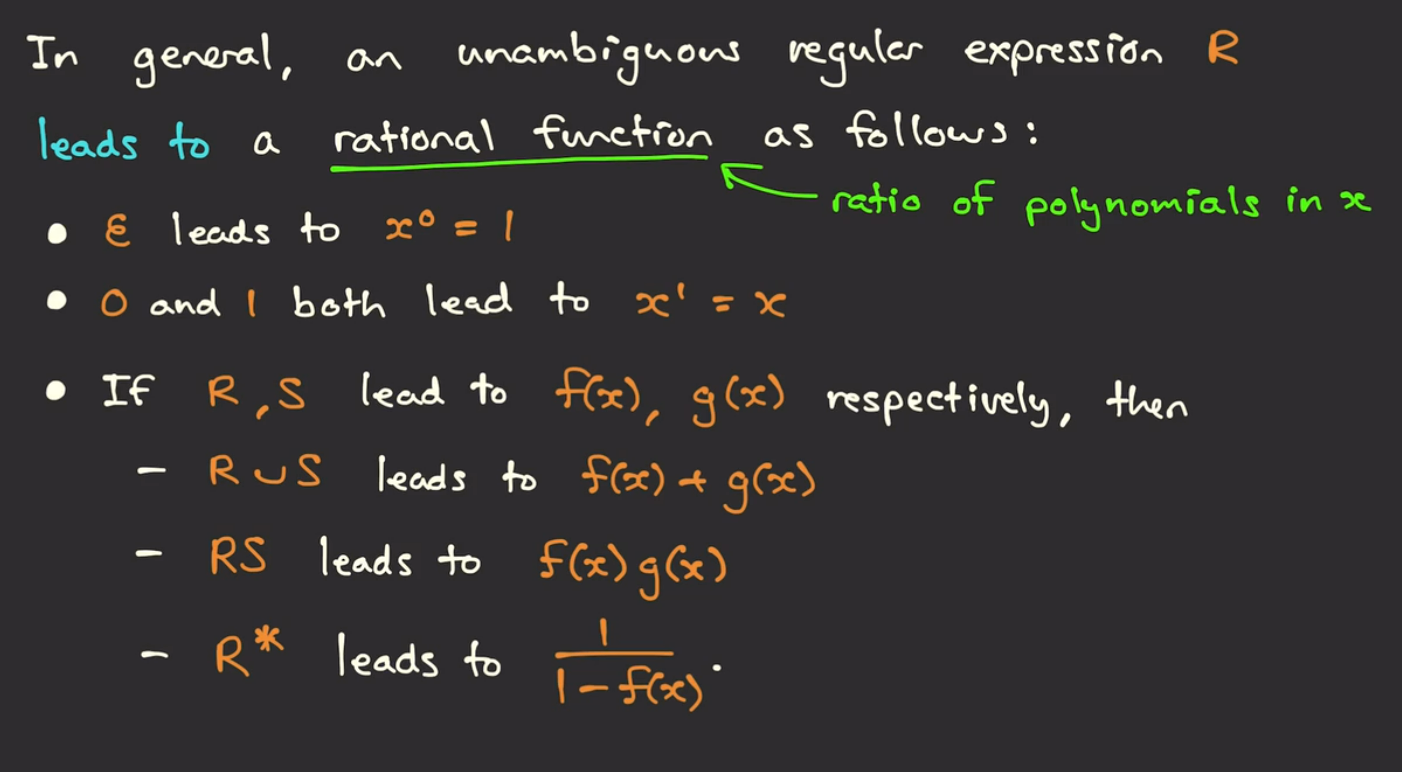 In general, an unambiguous regular expression R
leads to a rational function as follows:
ratio of polynomials in x
• ε leads to x⁰ = 1
• 0 and 1 both lead to x¹ = x
• If R, S lead to f(x), g(x) respectively, then
- R ∪ S leads to f(x) + g(x)
- RS leads to f(x)g(x)
- R* leads to 1/(1 - f(x)).